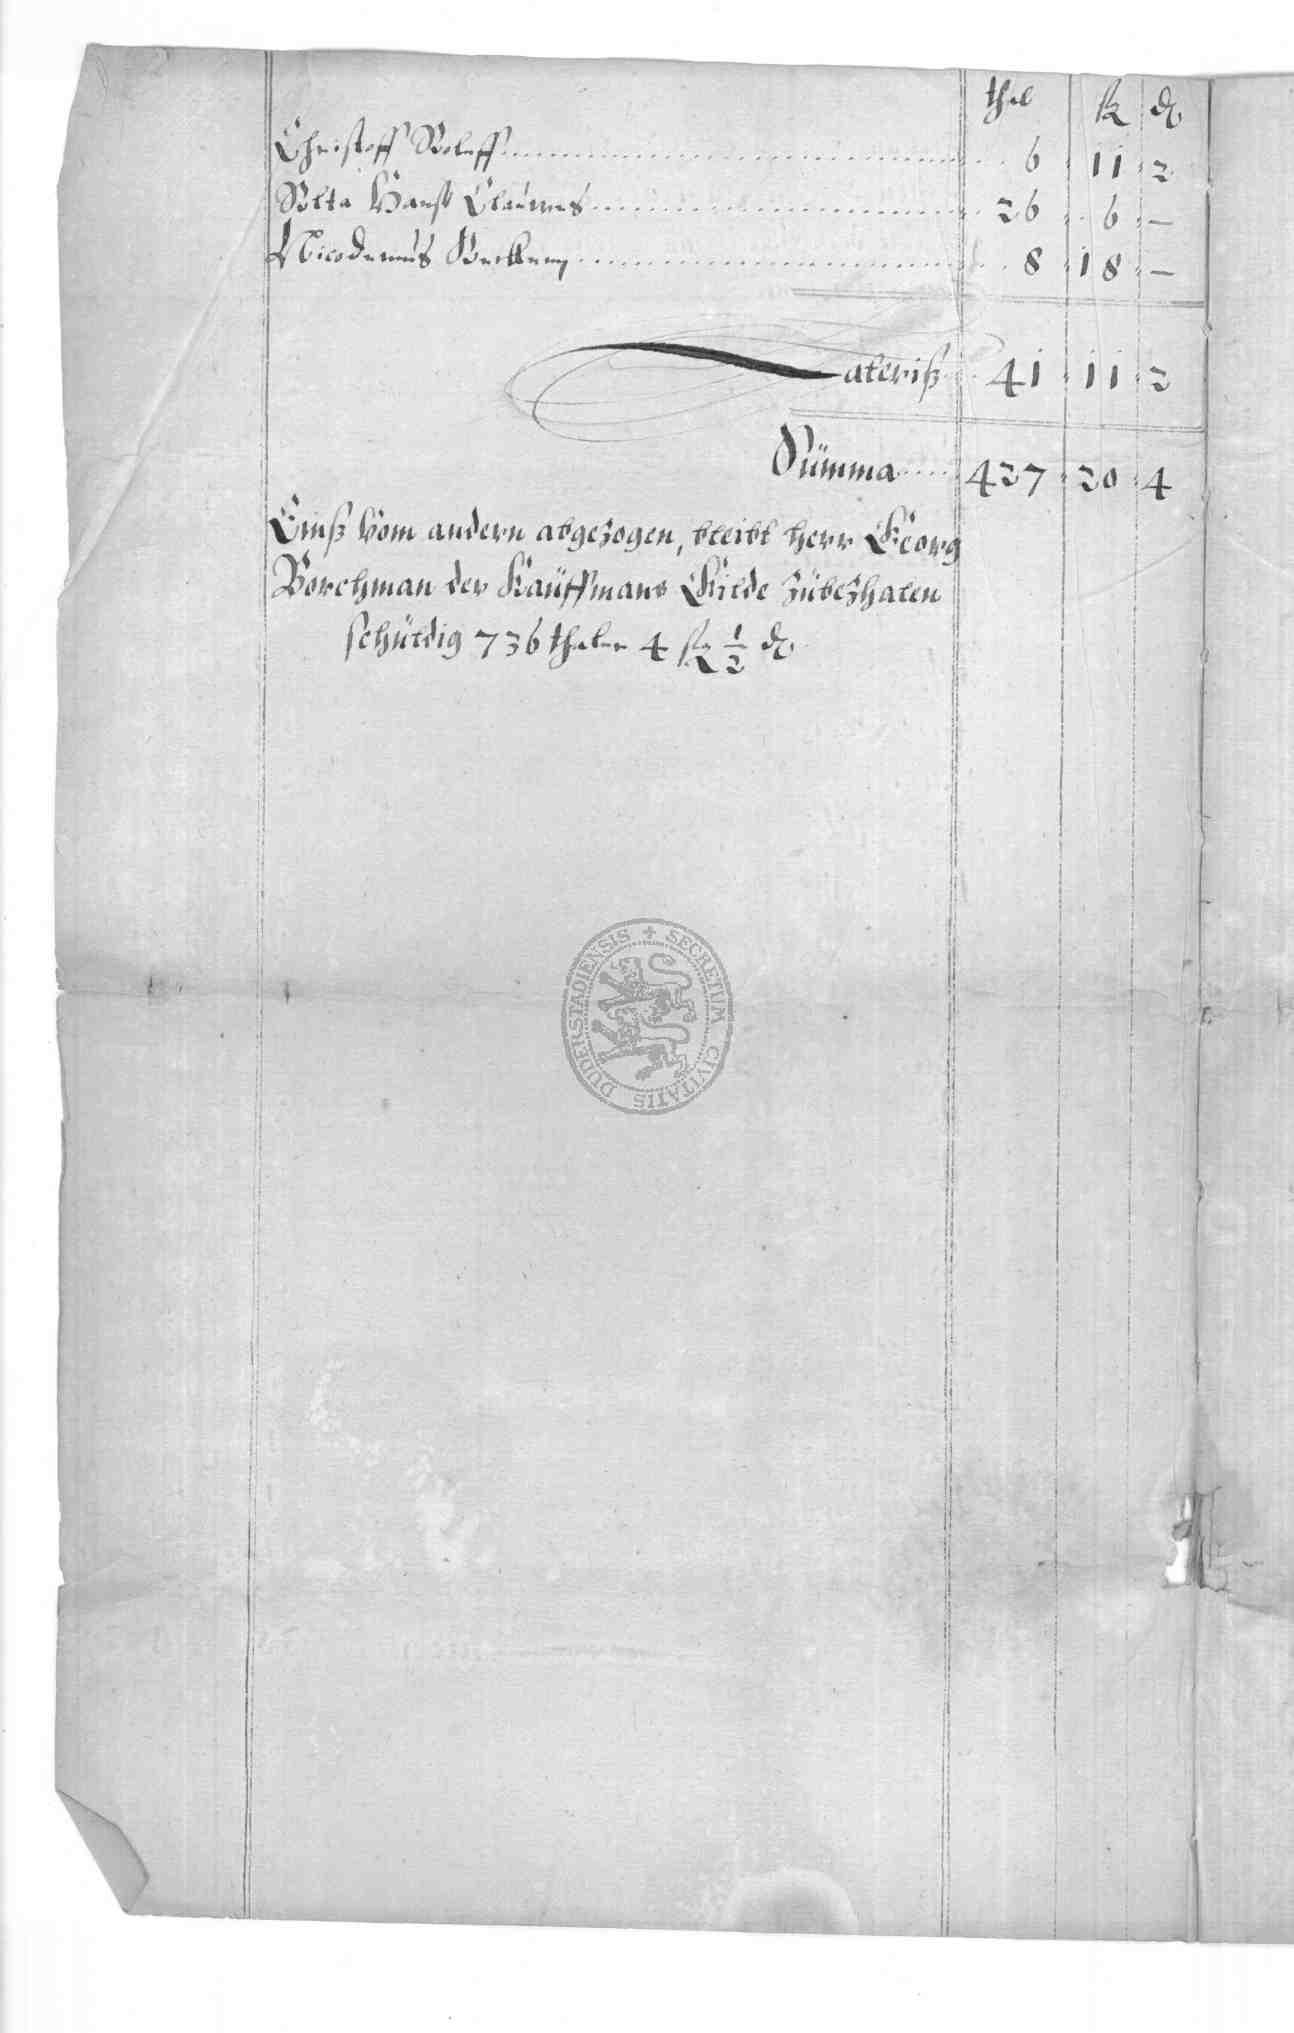 thal ß d
Christoff Roleff 6 11 2
Hanß Clauwes 26 6 —
Nicodemus 8 18 —
Lateriß 41 11 2
Sümma 427 20 4
Einß vom andern abgezogen, bleibt herr Georg
Borchman der Kauffmans Gilde zübezhalen
schüldig 736 thaler 4 ß ½ d
SECRETUM CIVITATIS DUDERSTADIENSIS